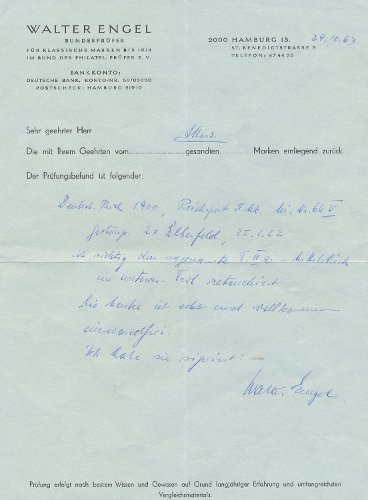 WALTER ENGEL
BUNDESPRÜFER
FÜR KLASSISCHE MARKEN BIS 1914
IM BUND DER PHILATEL. PRÜFER E. V.
BANKKONTO:
DEUTSCHE BANK, KONTO-NR. 50/02050
POSTSCHECK: HAMBURG 21912
2000 HAMBURG 13, 29.10.63
ST. BENEDICTSTRASSE 5
TELEFON: 47 44 53
Sehr geehrter Herr
Die mit Ihrem Geehrten vom gesandten Marken einliegend zurück.
Der Prüfungsbefund ist folgender.
Deutsch. Reich 1900, Reichspost 5 Mk. Mi. Nr. 66 V
gestemp. Elberfeld, 25.1.02
ist richtig die sogenannte T II
am unteren retuschiert
Die Marke ist echt und vollkommen
einwandfrei.
Ich habe sie signiert!
Walter Engel
Prüfung erfolgt nach bestem Wissen und Gewissen auf Grund langjähriger Erfahrung und umfangreichsten
Vergleichsmaterials.